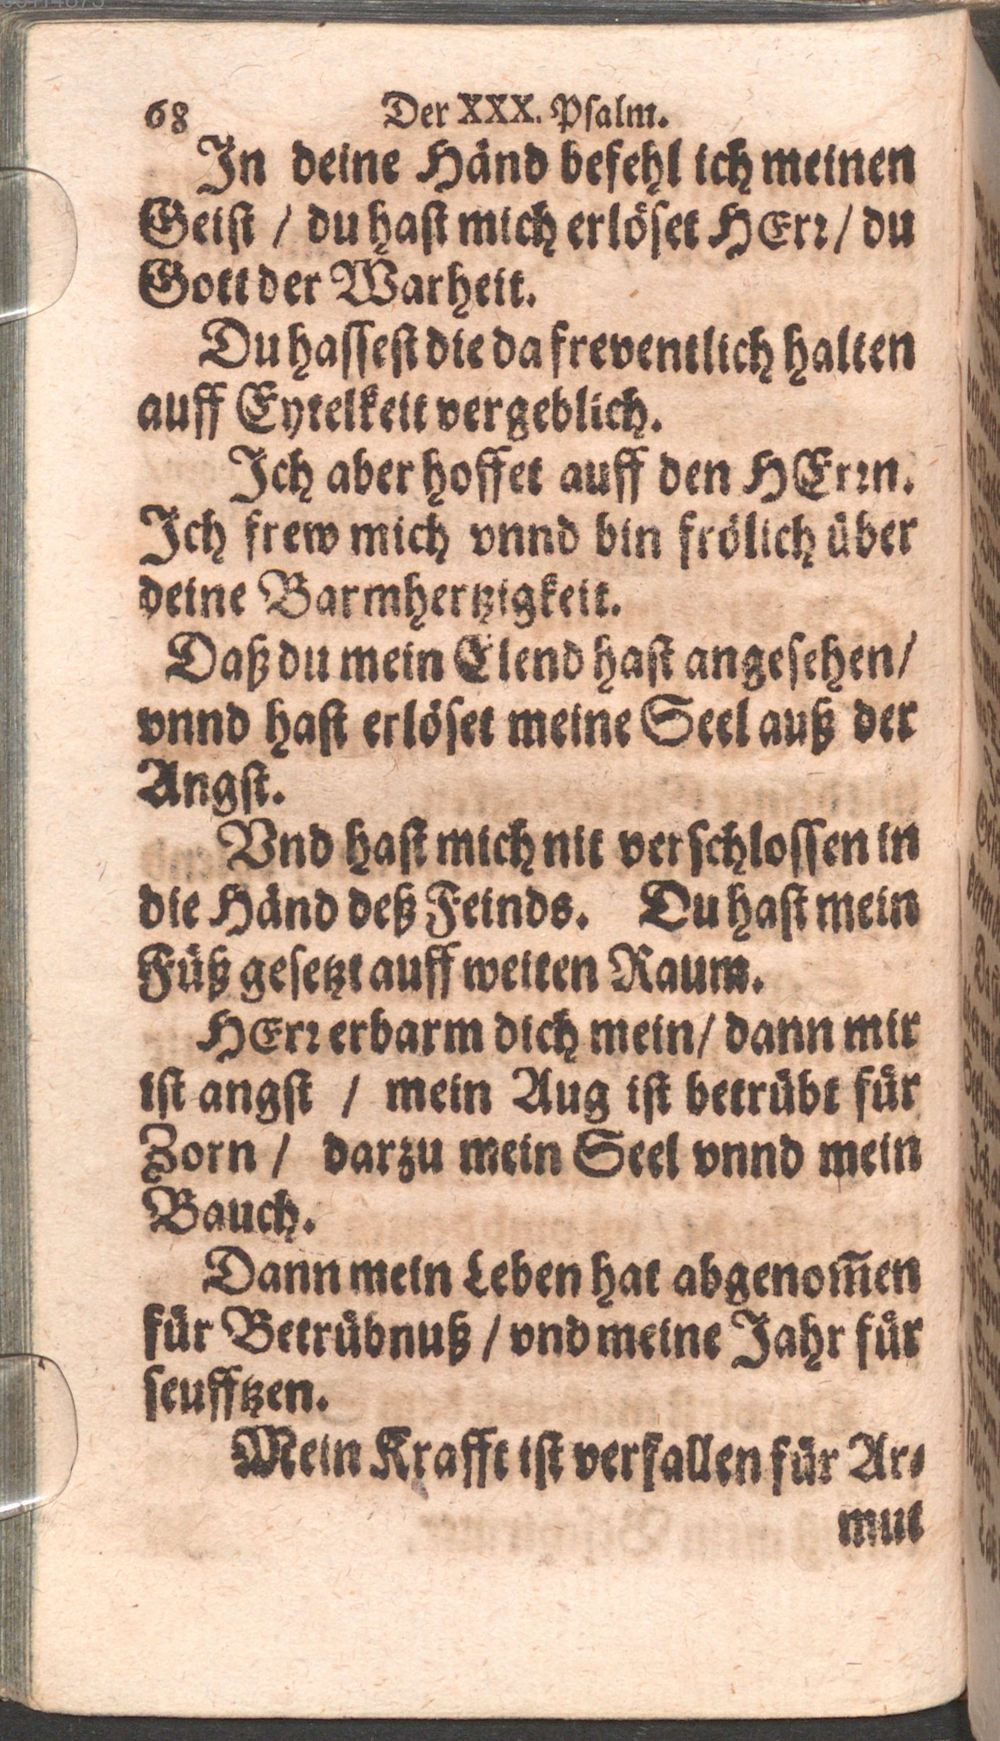 68 Der XXX. Psalm.
In deine Händ befehl ich meinen
Geist / du hast mich erlöset HErr / du
Gott der Warheit.
Du hassest die da freventlich halten
auff Eytelkeit vergeblich.
Ich aber hoffet auff den HErrn.
Ich frew mich vnnd bin frölich über
deine Barmhertzigkeit.
Daß du mein Elend hast angesehen /
vnnd hast erlöset meine Seel auß der
Angst.
Vnd hast mich nit verschlossen in
die Händ deß Feinds. Du hast mein
Füß gesetzt auff weiten Raum.
HErr erbarm dich mein / dann mir
ist angst / mein Aug ist betrübt für
Zorn / darzu mein Seel vnnd mein
Bauch.
Dann mein Leben hat abgenom̃en
für Betrübnuß / vnd meine Jahr für
seufftzen.
Mein Krafft ist verfallen für Ar-
mut